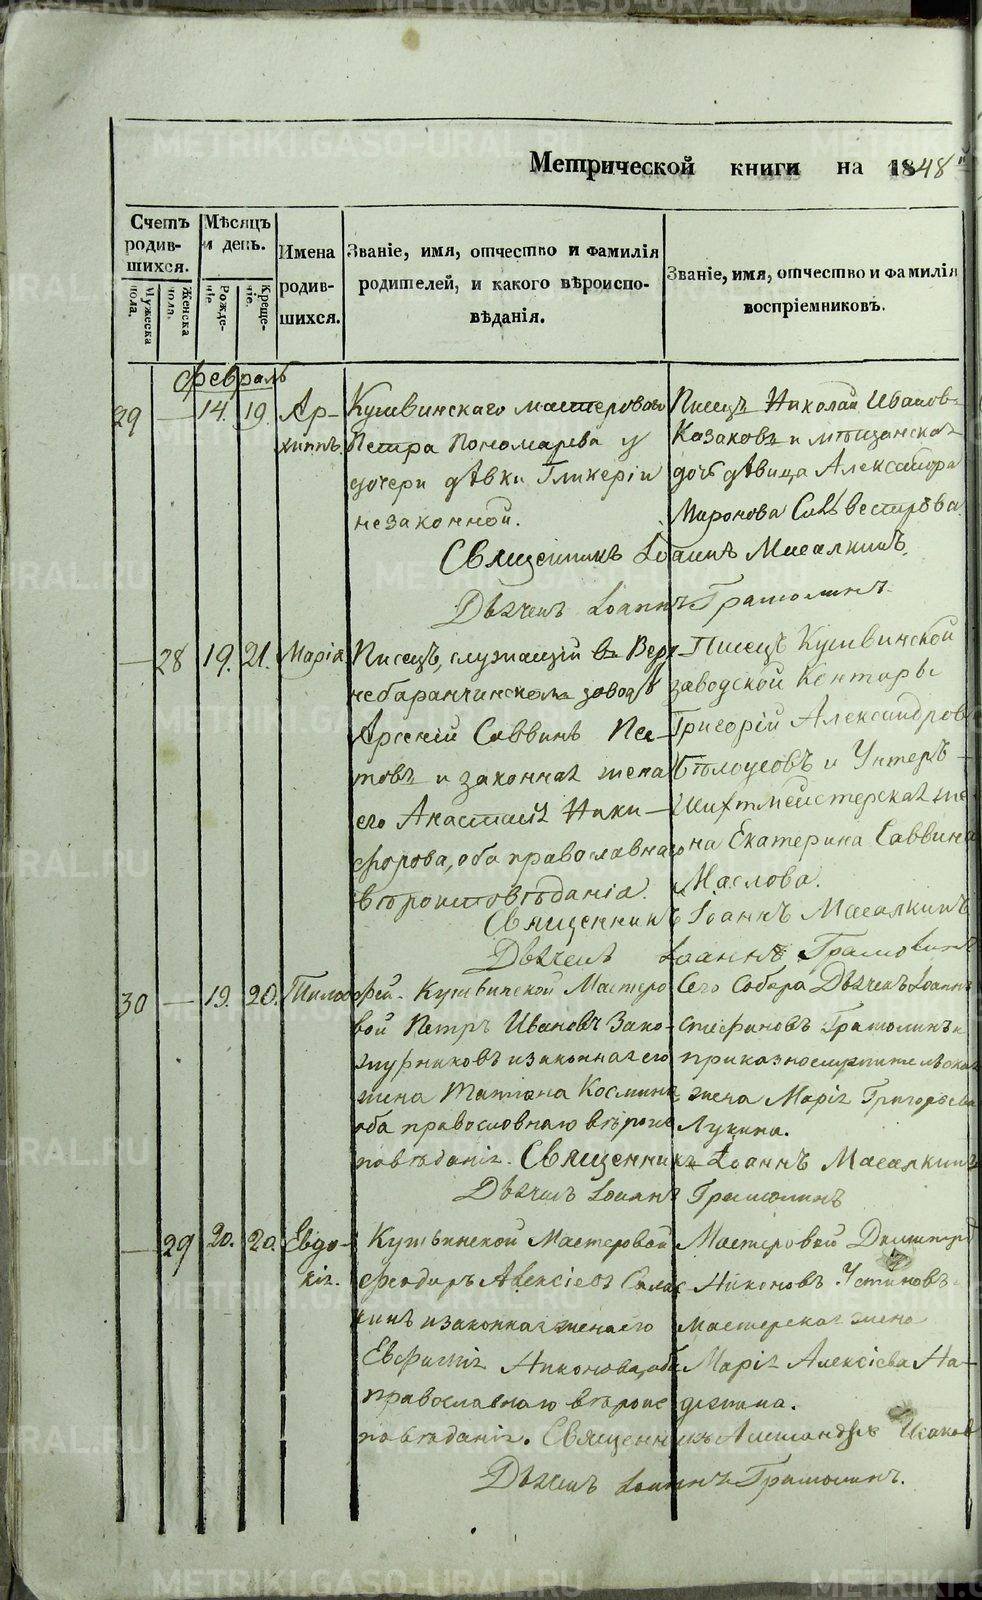 Метрической книги на 1848й
Счетъ родившихся.
Мужеска пола.
Женска пола.
Мѣсяцъ и день.
Рожденіе.
Крещеніе.
Имена родившихся.
Званіе, имя, отчество и фамилія родителей, и какого вѣроисповѣданія.
Званіе, имя, отчество и фамилія воспріемниковъ.
Февраль
29 — 14. 19. Архиппъ.
Кушвинскаго мастероваго
Петра Пономарева у
дочери дѣвки Гликеріи
незаконной.
Писецъ Николай Ивановъ
Казаковъ и мѣщанская
дочь дѣвица Александра
Миронова Сильвестрова.
Священникъ Іоаннъ Масалкинъ.
Дьячекъ Іоаннъ Грамолинъ.
— 28 19. 21. Марія
Писецъ, служащій въ Верх-
небаранчинскомъ заводѣ
Арсеній Саввинъ Пес-
товъ и законная жена
его Анастасія Ники-
форова, оба православнаго
вѣроисповѣданія.
Писецъ Кушвинской
заводской Конторы
Григорій Александровъ
Бѣлоусовъ и Унтеръ-
Шихтмейстерская же-
на Екатерина Саввина
Маслова.
Священникъ Іоаннъ Масалкинъ
Дьячекъ Іоаннъ Грамолинъ
30 — 19. 20. Тимофей.
Кушвинской Мастеро
вой Петръ Ивановъ Зако-
пурниковъ и законная его
жена Татіана Космина
оба православнаго вѣроис
повѣданія.
Сего Собора Дьячекъ Іоаннъ
Стефановъ Грамолинъ и
приказнослужительская
жена Марія Григорьева
Лукина.
Священникъ Іоаннъ Масалкинъ
Дьячекъ Іоаннъ Грамолинъ
— 29 20. 20. Евдокія.
Кушвинской Мастеровой
Феодоръ Алексіевъ
кинъ и законная жена его
Евфимія Никонова, оба
православнаго вѣроис
повѣданія.
Мастеровой Димитрій
Никоновъ Устиновъ
мастерская жена
Марія Алексіева На-
дегина.
Священникъ Александръ
Дьячекъ Іоаннъ Грамолинъ.
METRIKI.GASO-URAL.RU